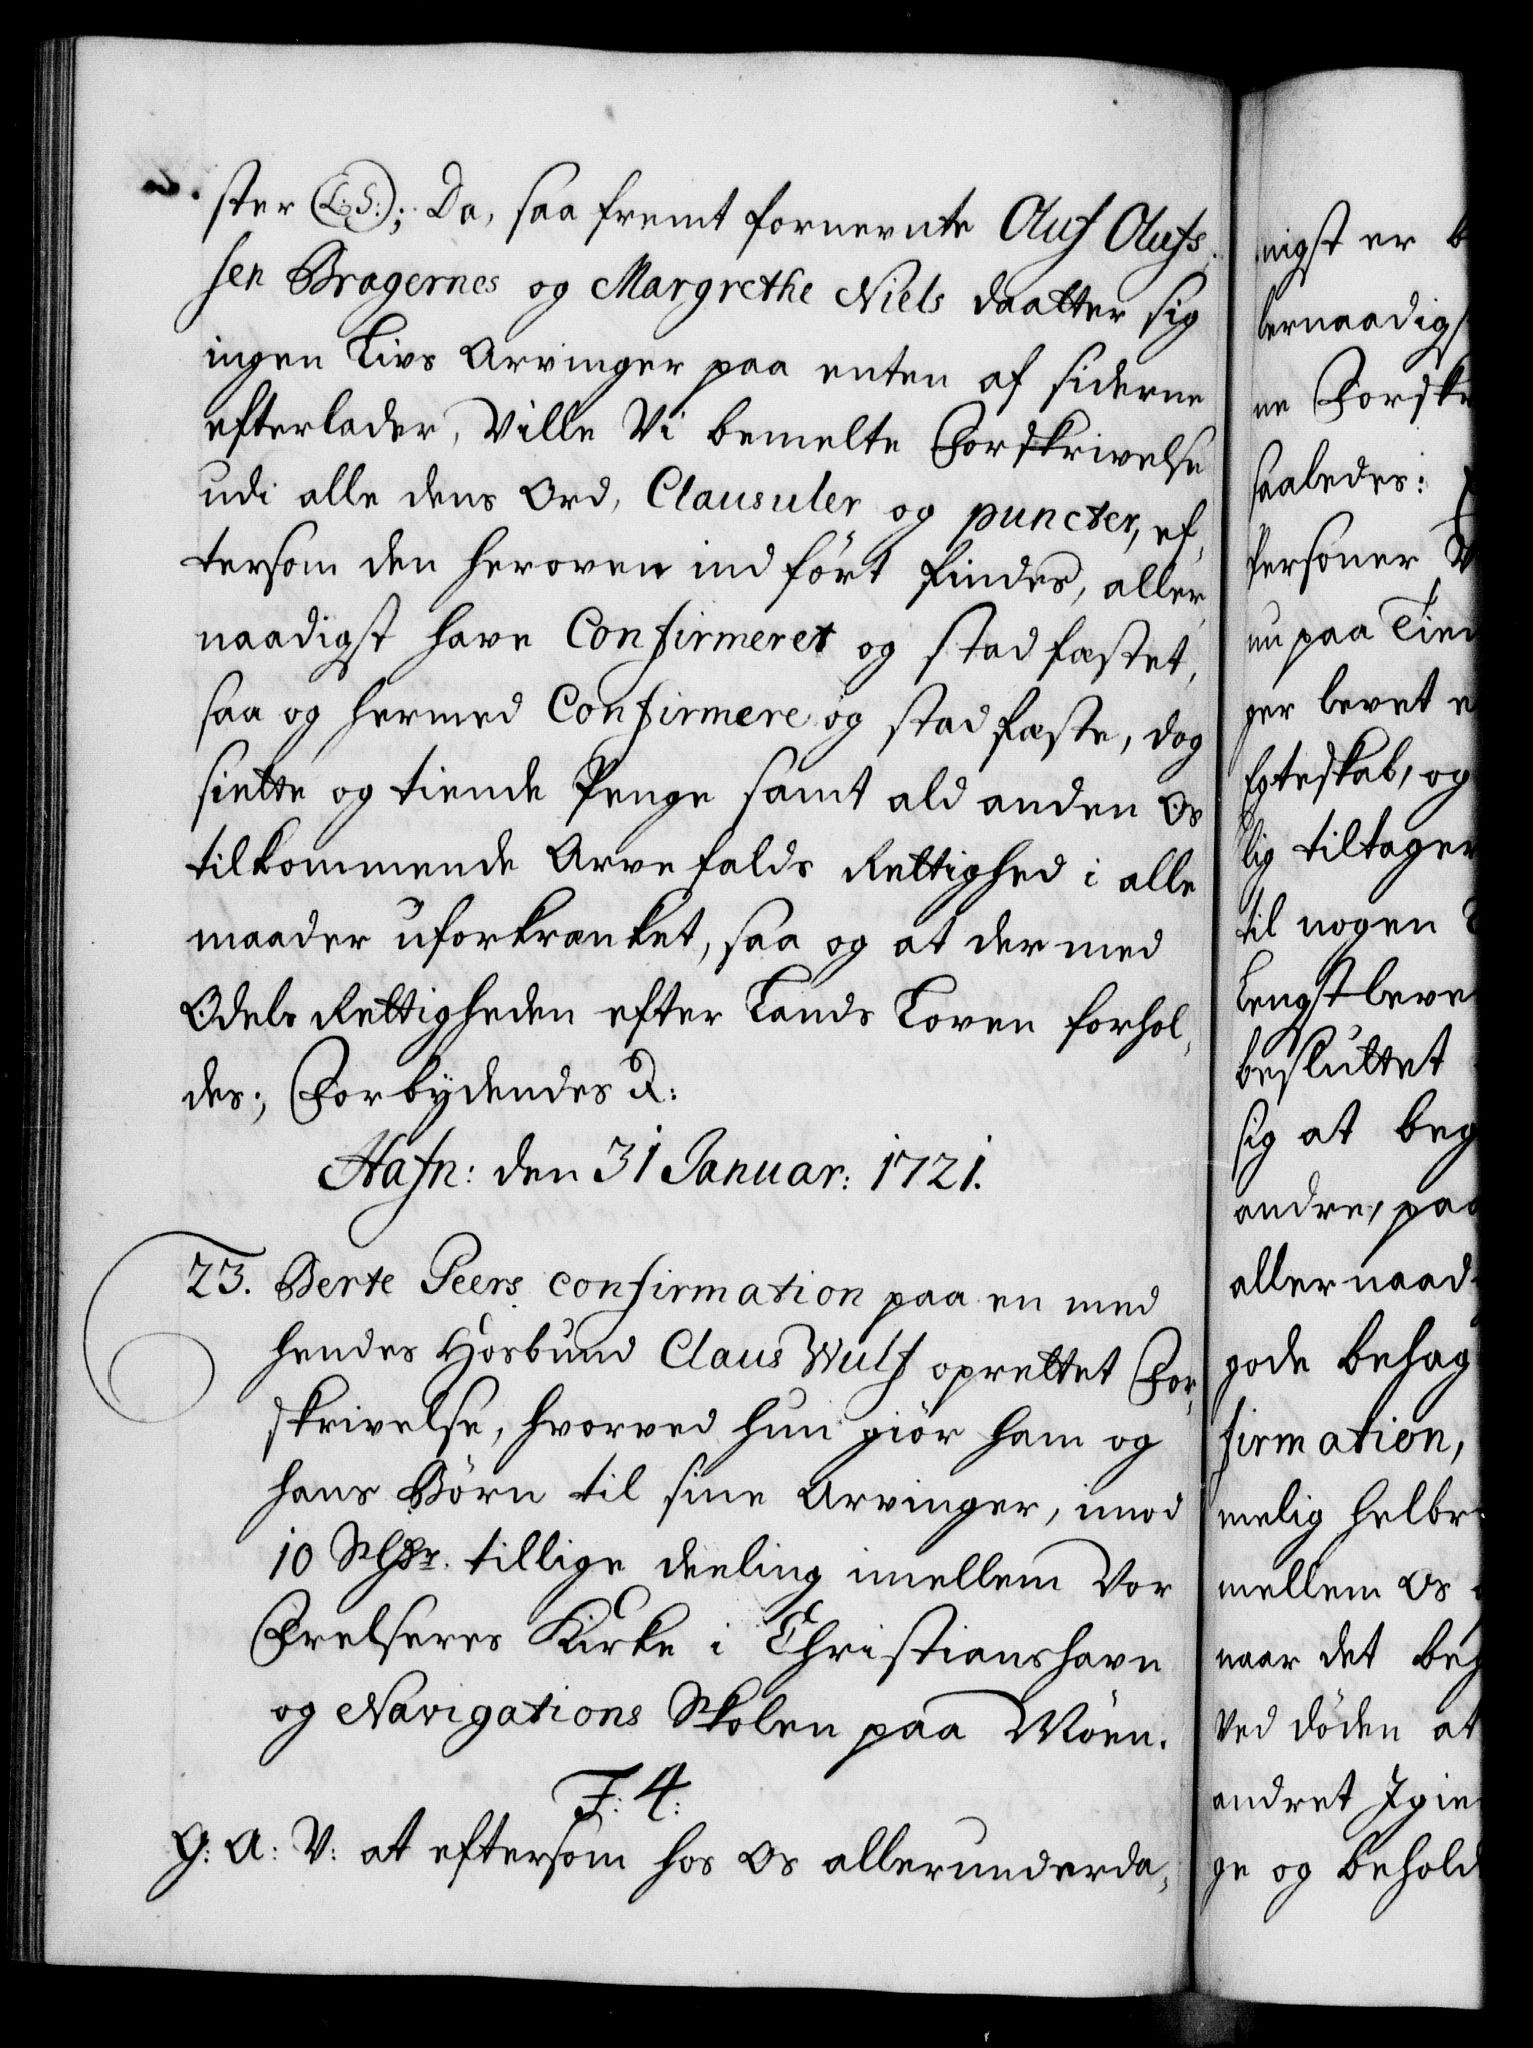 ster (L.S.); Da, saa fremt fornevnte Oluf Olufs,
sen Bragernes og Margrethe Niels daatter sig
ingen Livs Arvinger paa enten af siderne
efterlader, Ville Vi bemelte Forskrivelse
udi alle dens Ord, Clausuler og puncter, ef,
tersom den heroven indført findes, aller,
naadigst have Confirmeret og stadfæstet,
saa og hermed Confirmere og stadfæste, dog
siette og tiende Penge samt ald anden Os
tilkommende Arvefalds Rettighed i alle
maader uforkrænket, saa og at dermed
Odels Rettigheden efter Lands Loven forhol,
des; Forbydendes &:
Hafn: den 31 Januar: 1721.
23. Berte Peers confirmation paa en med
hendes Hosbund Claus Wulf oprettet For,
skrivelse, hvorved hun giør ham og
hans Børn til sine Arvinger, imod
10 Rdr. tillige deeling imellem Vor
Frelseres Kirke i Christianshavn
og Navigations Skolen paa Møen.
F: 4:
G: A: V: at eftersom hos Os allerunderda,
nigst er
lernaadigst
ne Forskr
saaledes:
Personer
nu paa Tien
ger levet
Egteskab, og
lig tiltager
til nogen
Lengstleve
besluttet
sig at beg
andre, paa
allernaad
gode behag
firmation,
melig helbr
mellem Os
naar det beh
ved døden at
andret Igie
ge og behold